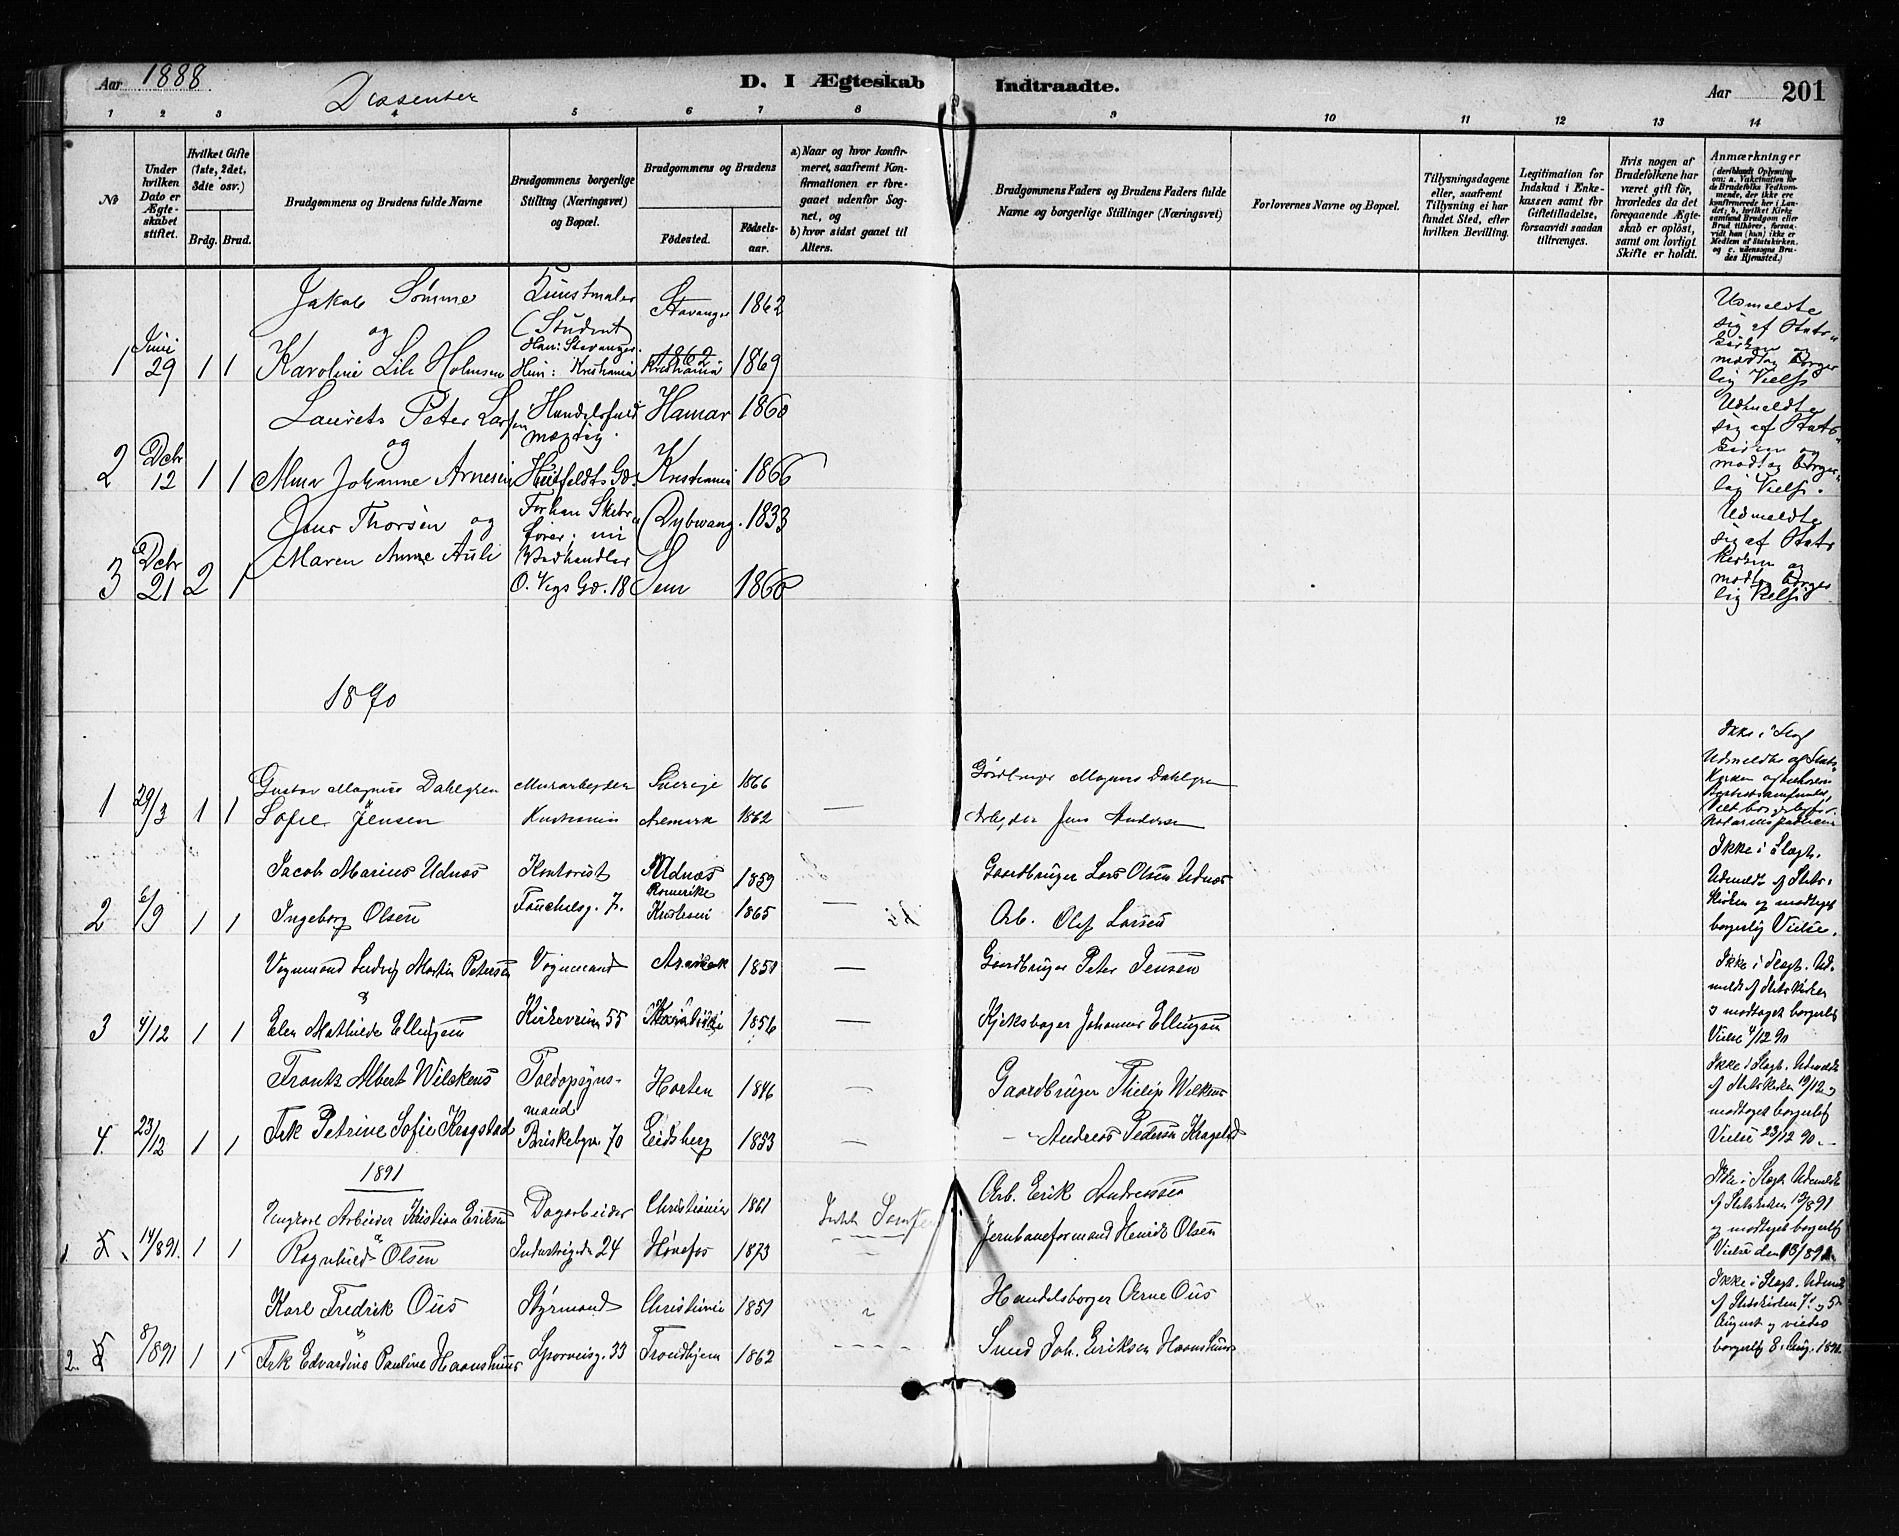 Aar 1888.
Dissenter
D. I Ægteskab Indtraadte.
Aar 201
1 2 3 4 5 6 7 8 9 10 11 12 13 14
No
Under hvilken Dato er Ægteskabet stiftet.
Hvilket Gifte (1ste, 2det, 3die osv.)
Brdg. Brud.
Brudgommens og Brudens fulde Navne
Brudgommens borgerlige Stilling (Næringsvei) og Bopæl.
Brudgommens og Brudens
Födested.
Födselsaar.
a) Naar og hvor konfirmeret, saafremt Konfirmationen er foregaaet udenfor Sognet, og
b) hvor sidst gaaet til Alters.
Brudgommens Faders og Brudens Faders fulde Navne og borgerlige Stillinger (Næringsvei)
Forlovernes Navne og Bopæl.
Tillysningsdagene eller, saafremt Tillysning ei har fundet Sted, efter hvilken Bevilling.
Legitimation for Indskud i Enkekassen samt for Giftetilladelse, forsaavidt saadan tiltrænges.
Hvis nogen af Brudefolkene har været gift för, hvorledes da det foregaaende Ægteskab er oplöst, samt om lovligt Skifte er holdt.
Anmærkninger (deriblandt Oplysning om: a. Vakcination for de Brudefolks Vedkommende, der ikke ere konfirmerede her i Landet; b. hvilket Kirkesamfund Brudgom eller Brud tilhörer, forsaavidt han (hun) ikke er Medlem af Statskirken, og c. udensogns Brudes Hjemsted.)
Jakob Sømme Kunstmaler Stavanger 1862
og (Student
1 Juni 29 1 1 Karoline Holmsen Han: Stavanger. Hun: Kristiania Kristiania 1869
Udmeldte sig af Statskirken og modtog borgerlig Vielse
Laurits Peter Larsen Handelsfuldmægtig. Hamar 1860
og
2 Decbr 12 1 1 Alma Johanne Arnesen Huitfeldts Gd. Kristiania 1866
Udmeldte sig af Statskirken og modtog borgerlig Vielse.
Jens Thorsen og Forhen Skibsfører; nu Dybwang. 1833
3 Decbr 21 2 1 Maren Anne Auli Vedhandler O. Vogs Gd. 18 Sem 1860
Udmeldte sig af Statskirken og modtog borgerlig Vielse
1890
Gustav Magnus Dahlgren Murarbeyder Sverige 1866 Gårdbruger Magnus Dahlgren
1 29/3 1 1 Sofie Jensen Kristiania Aremark 1862 — Arbeyder Jens Andersen
Ikke i Slægt
Udmeldte af Statskirken
Jacob Marius Udnæs Kontorist Udnæs Romerike 1859 Gaardbruger Lars Olsen Udnæs
2 6/9 1 1 Ingeborg Olsen Fauchalsg. 7. Kristiani 1865 — Arb. Olaf Larsen
Ikke i Slægt. Udmeldt af Statskirken og modtaget borgerlig Vielse.
Vognmand Ludvig Martin Petersen Vognmand Aremark 1851 — Gaardbruger Peter Jensen
3 4/12 1 1 Elen Mathilde Ellingsen Kirkeveien 55 1856 — Johannes Ellingsen
Ikke i Slægt. Udmeldt af Statskirken og modtaget borgerlig Vielse 4/12 90
Frantz Albert Wilckens Toldopsynsmand Horten 1846 — Gaardbruger Philip Wilkens
4. 23/12 1 1 Frk Petrine Sofie Kragstad Briskebyn 70 Eidsberg 1853 — Andreas Pedersen Kragstad
Ikke i Slægt. Udmeldte af Statskirken 19/12 og modtaget borgerlig Vielse 23/12 90.
1891
Ungkarl Arbeider Kristian Eriksen Dagarbeider Christiania 1861 Arb. Erik Andreassen
1. 5. 14/891. 1 1 Ragnhild Olsen Industrigada 24 Hønefos 1873 Jernbaneformand Henrik Olsen
Ikke i Slægt. Udmeldte af Statskirken 10/891 og modtaget borgerlig Vielse den 13/891
Karl Fredrik Ous Styrmand Christiania 1851 " Handelsborger Arne Ous
2. 8/891 1 1 Frk Edvardine Pauline Haanshuus Sporveisg. 33 Trondhjem 1862 Smed Joh. Eriksen Haanshuus
Ikke i Slægt. Udmeldt af Statskirken 7. og 5. August og viedes borgerlig 8. Aug. 1891.